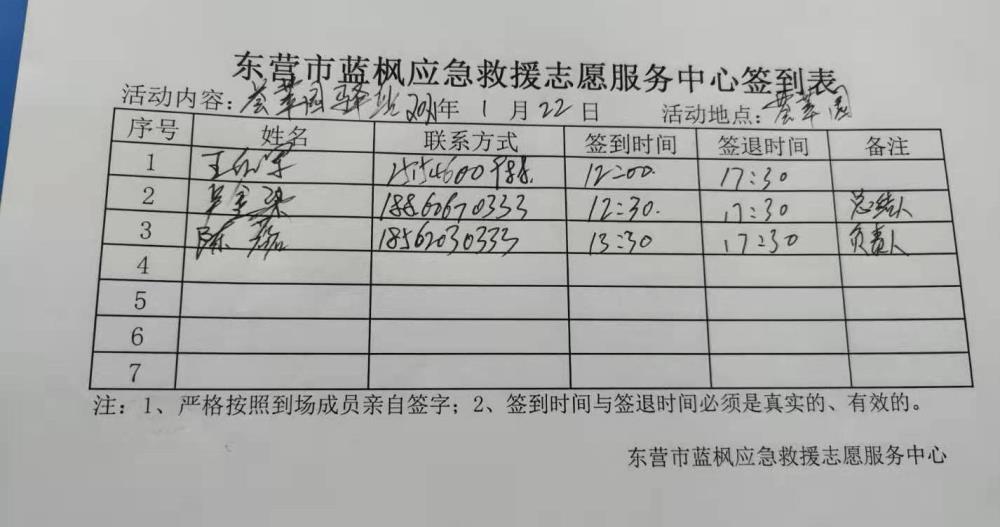 东营市蓝枫应急救援志愿服务中心签到表
活动内容：荟萃园驿站 2021年 1月22日 活动地点：荟萃园
序号 姓名 联系方式 签到时间 签退时间 备注
1 王 12:00 17:30
2 吴金梁 18860670333 12:30 17:30 总结人
3 陈磊 18562030333 13:30 17:30 负责人
4
5
6
7
注：1、严格按照到场成员亲自签字；2、签到时间与签退时间必须是真实的、有效的。
东营市蓝枫应急救援志愿服务中心